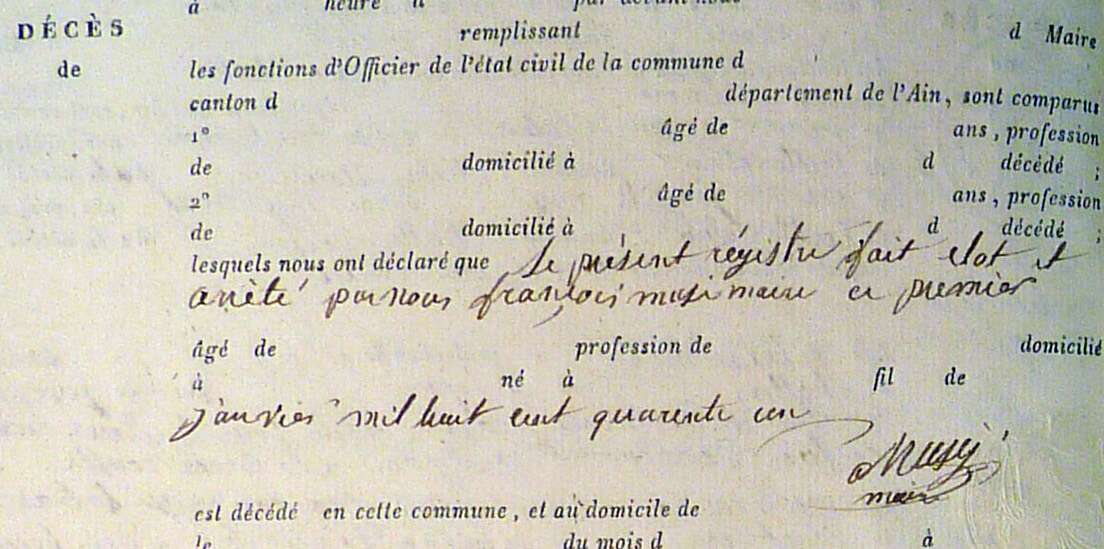 à heure d par devant nous
DÉCÈS remplissant d Maire
de les fonctions d'Officier de l'état civil de la commune d
canton d département de l'Ain, sont comparus
1° âgé de ans, profession
de domicilié à d décédé ;
2° âgé de ans, profession
de domicilié à d décédé ;
lesquels nous ont déclaré que Le présent régistre fait clot et
arrèté par nous françois musi maire ce premier
âgé de profession de domicilié
à né à fil de
janvier mil huit cent quarente un
Musy
maire
est décédé en cette commune, et au domicile de
le du mois d à